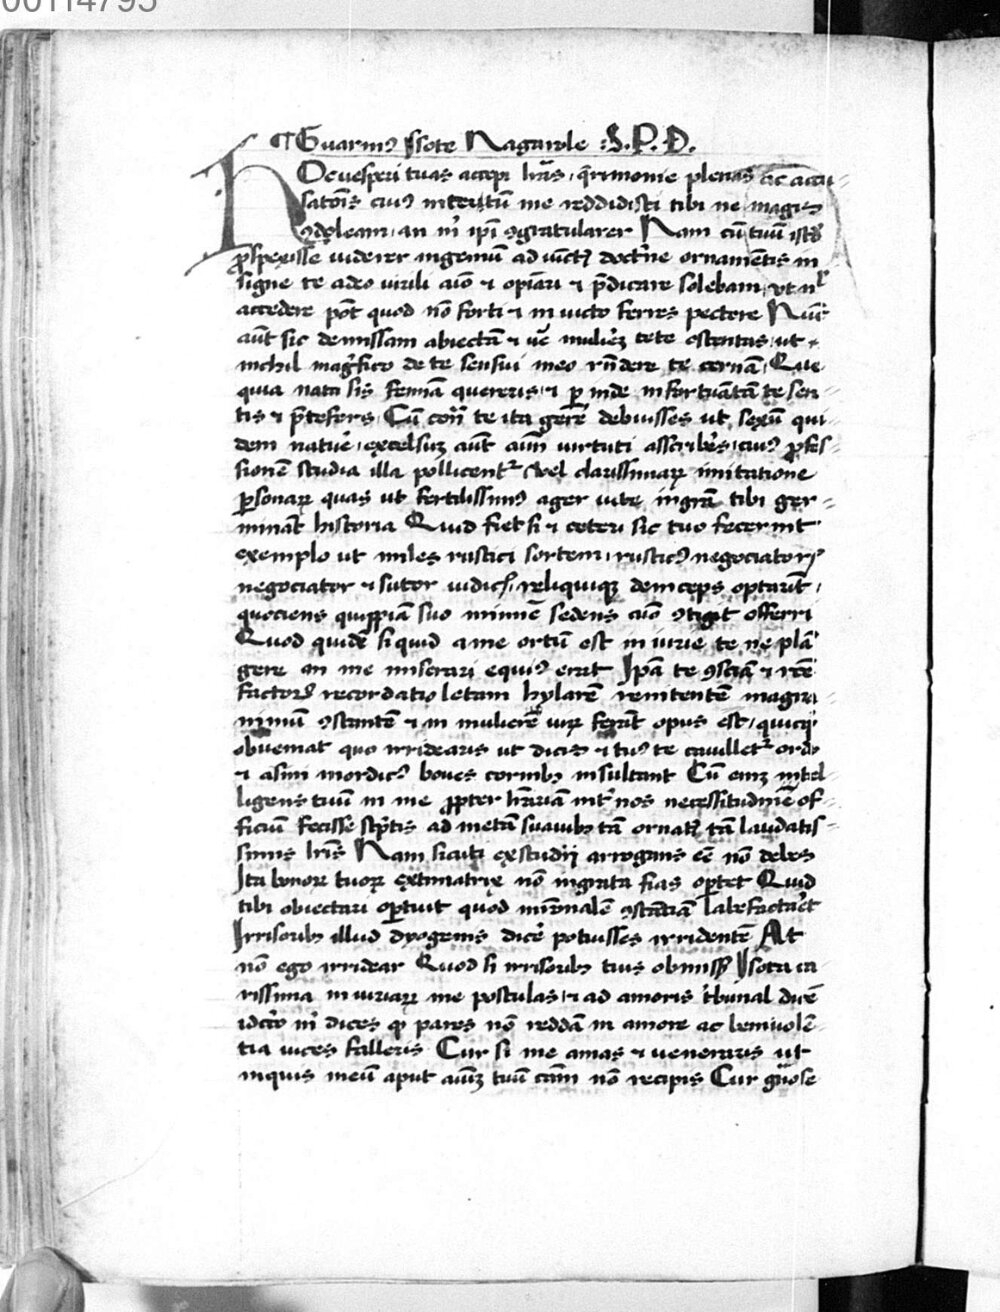 00114795
¶ Guarinꝰ Isote Nagarole .S.P.D.
HOc vesperi tuas accepi lr̄as, q̄rimonie plenas ac accu-
satōis cuiꝰ incertū me reddidisti tibi ne magis
ꝯdoleam, an m̄ ip̄i ꝯgratularer Nam cū tuū istḋ
ꝑspexisse viderer ingeniū ad iūct doctͥne ornamētis in
signe te adeo virili aīo ⁊ opīari ⁊ p̄dicare solebam, vt nͥl
accedere pōt quod nō forti ⁊ in victo ferres pectore Nūc
aūt sic demissam abiectā ⁊ ve᷒ mulieꝝ tete ostentas, ut
nichil mag͛fico de te sensui meo rn̄dere te cernā, Que
quia nata sis femīa quereris, ⁊ ꝑ inde infortūatā te sen
tis ⁊ p̄tefers, Cū te ita gere᷒ debuisses ut, sexū qui
dem nature, excelsuꝫ aūt aīm virtuti asscribēs, cuiꝰ ꝓfes
sionē studia illa pollicentᷣ Vel clarissimaꝝ imitatione
ꝑsonaꝝ quas ut fertilissimꝰ ager vite ingrā tibi ger
minat historia Quid fiet si ⁊ ceteri sic tuo fecerint
exemplo ut miles rustici sortem, rusticꝰ negociatorꝭ
negociator ⁊ sutor iudicꝭ, reliquiqꝫ deinceps optarīt,
quociens quippiā suo minuē sedens aīo ꝯtigit offerri
Quod quidē si quid a me ortū est in iurie te ne plā
gere an me miserari equiꝰ erat Ip̄a te ꝯsciā ⁊ rc̄e
factorꝭ recordatio letam hylarē renitentē magna
nimū ꝯstantē ⁊ in muliere᷒ virū ferat opus est, quicq̇
obveniat quo irridearis ut dicis ⁊ tuꝰ te cavilletᷣ ordo
⁊ asini mordicꝰ boves cornibꝫ insultant Cū eniꝫ intel
ligens tuū in me ꝓpter lr̄ariā intᷣ nos necessitudinē of
ficiū fecisse scp̄tis ad metā suavibꝫ tā ornatꝭ tā laudatis
simis lr̄is Nam sicuti ex studijs arrogans eē nō debes
Ita bonoꝝ tuoꝝ extimatrix nō ingrata fias oꝑtet Quid
tibi obiectari oꝑtuit quod ꝯstātiā labefactaret
Irrisoribꝫ illud dyogenis dice᷒ potuisses irridentē At
nō ego irridear Quod si irrisoribꝫ tuis Isota ca
rissima in iuriaꝝ me postulas, ⁊ ad amoris tͥbunal
idcͥco m̄ dices qꝫ pares nō reddā in amore ac benivolē
tia vices falleris Cur si me amas ⁊ veneraris ut
inquis meū aput aīuꝫ tuū nō recipis Cur